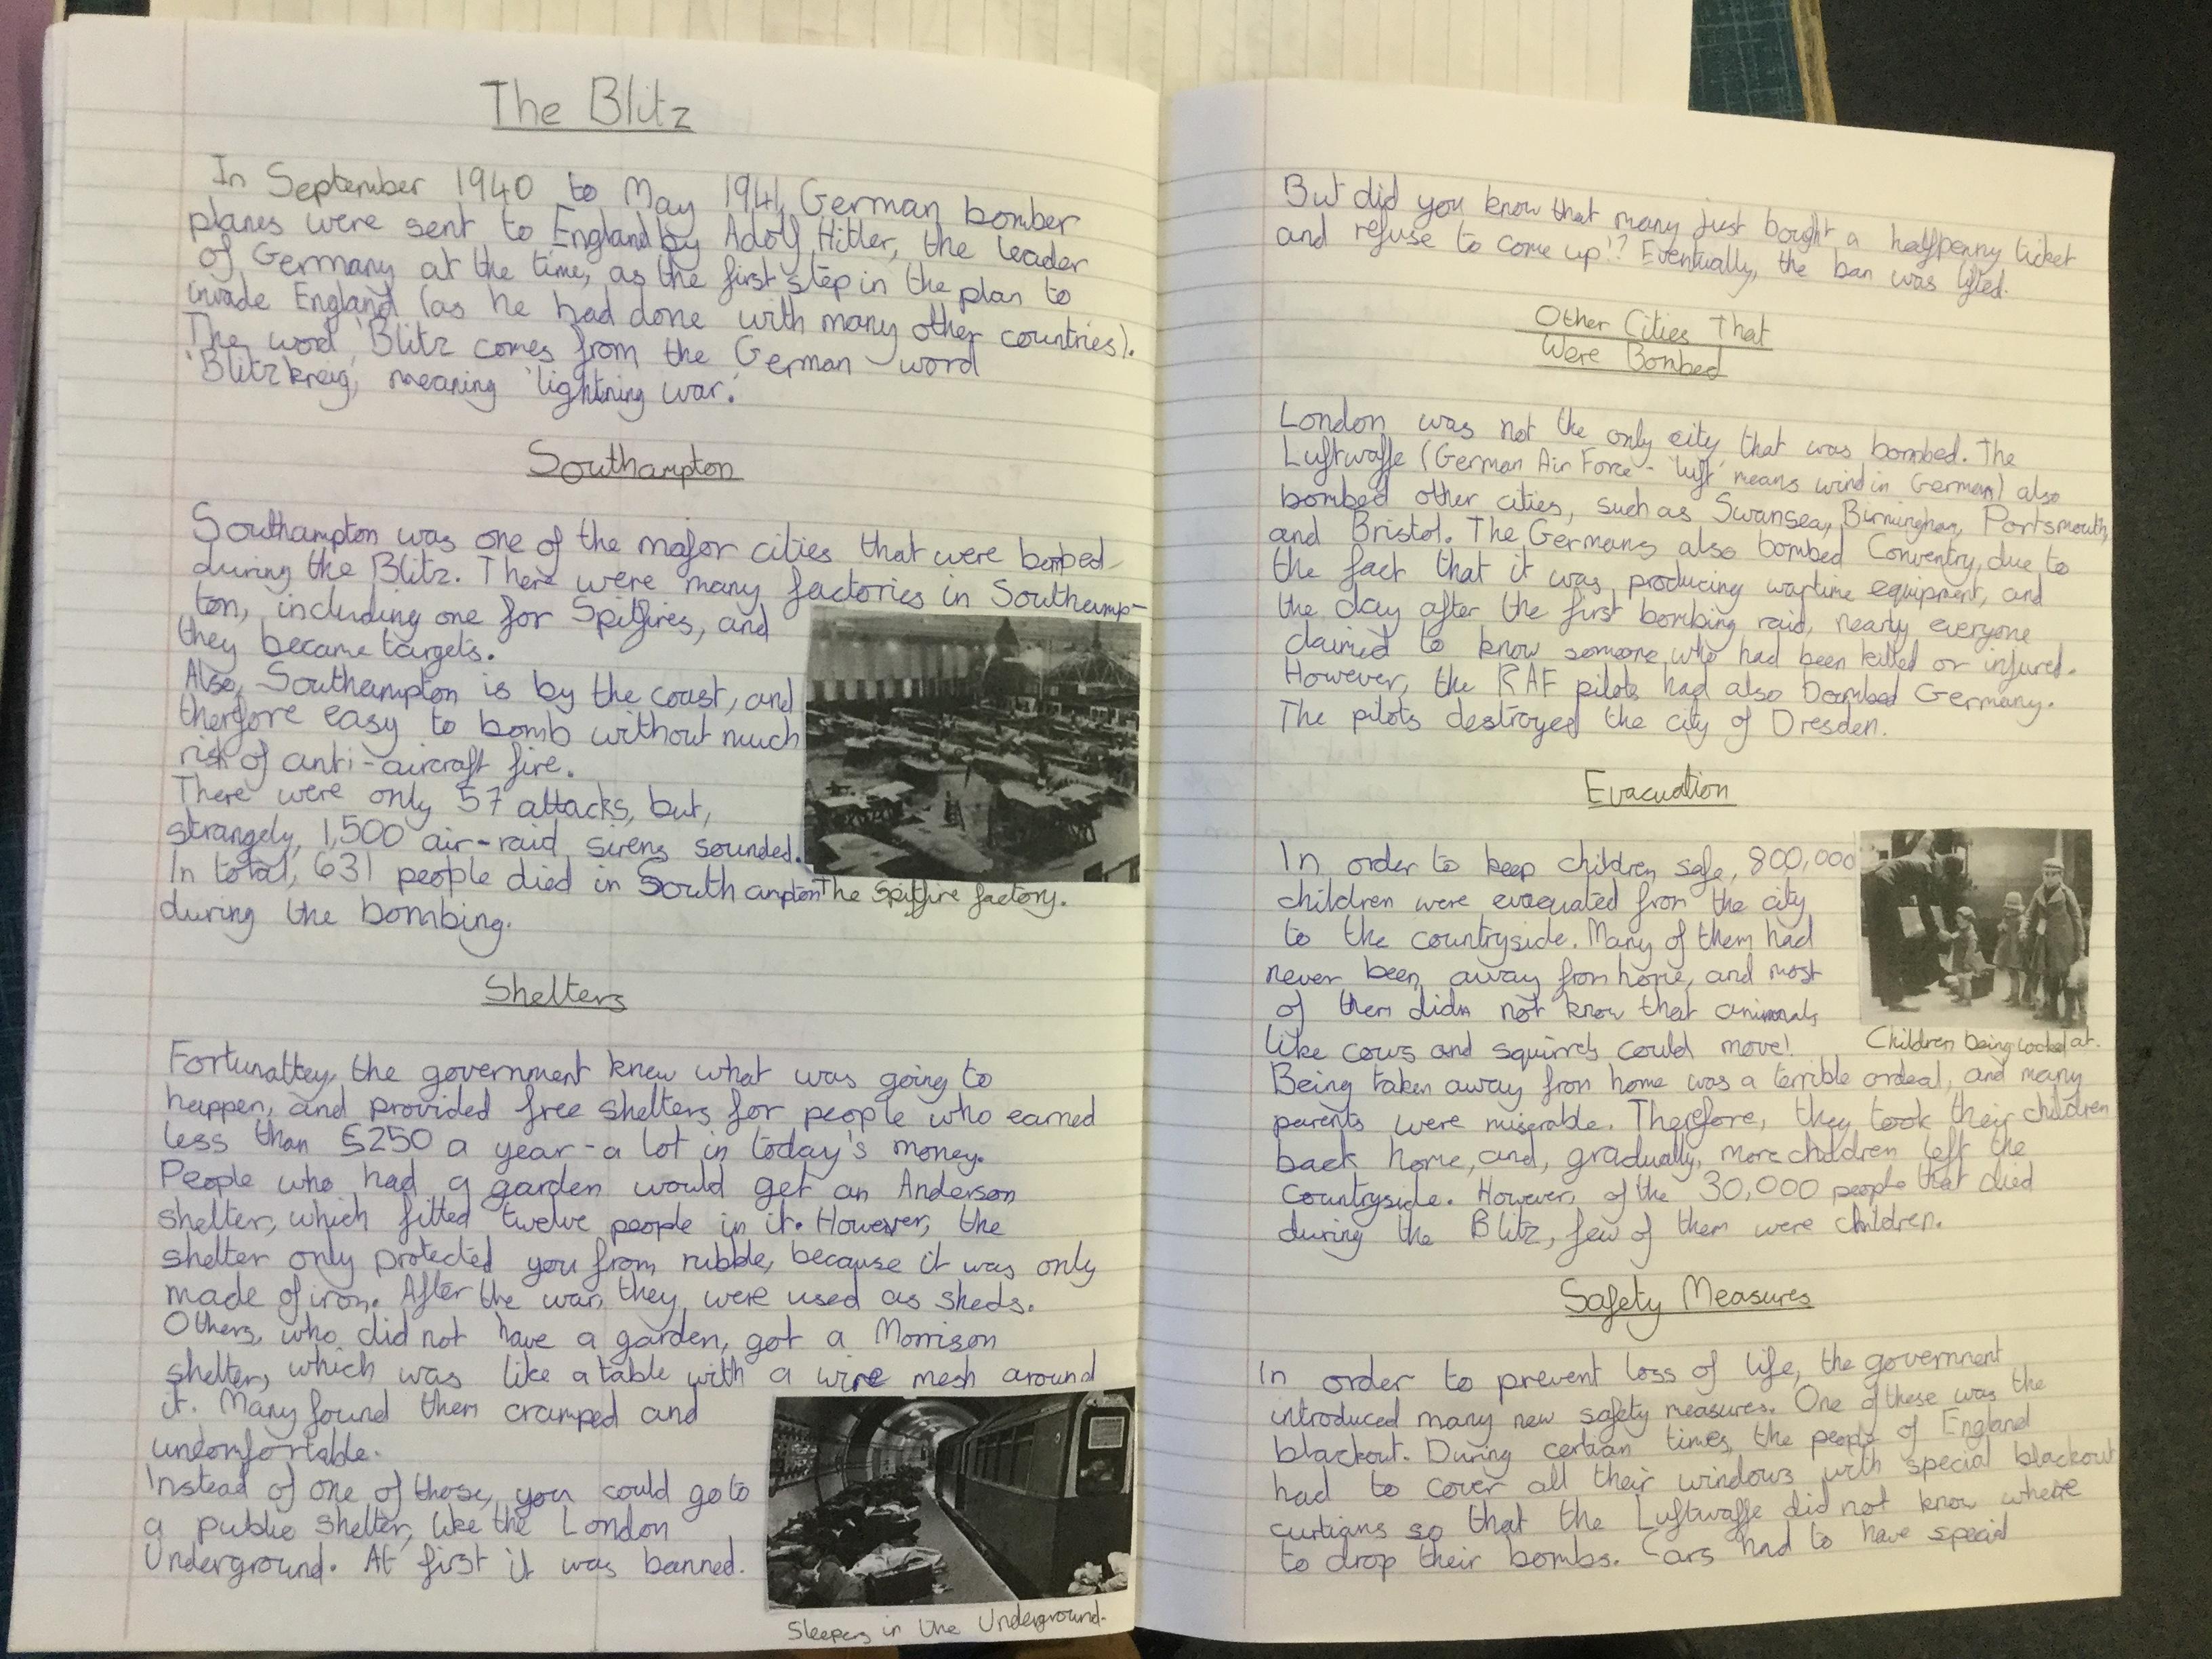 The Blitz
In September 1940 to May 1941, German bomber
planes were sent to England by Adolf Hitler, the leader
of Germany at the time, as the first step in the plan to
invade England (as he had done with many other countries).
The word 'Blitz comes from the German word
'Blitzkreig,' meaning 'lightning war.'
Southampton
Southampton was one of the major cities that were bombed
during the Blitz. There were many factories in Southamp-
ton, including one for Spitfires, and
they became targets.
Also, Southampton is by the coast, and
therefore easy to bomb without much
risk of anti-aircraft fire.
There were only 57 attacks, but,
strangely, 1,500 air-raid sirens sounded.
In total, 631 people died in Southampton
during the bombing.
The Spitfire factory.
Shelters
Fortunattey, the government knew what was going to
happen, and provided free shelters for people who earned
less than £250 a year - a lot in today's money.
People who had a garden would get an Anderson
shelter, which fitted twelve people in it. However, the
shelter only protected you from rubble, because it was only
made of iron. After the war, they were used as sheds.
Others, who did not have a garden, got a Morrison
shelter, which was like a table with a wire mesh around
it. Many found them cramped and
uncomfortable.
Instead of one of those, you could go to
a public shelter, like the London
Underground. At first it was banned.
Sleepers in the Underground.
But did you know that many just bought a halfpenny ticket
and refuse to come up!? Eventually, the ban was lifted.
Other Cities That
Were Bombed
London was not the only city that was bombed. The
Luftwaffe (German Air Force - 'luft' means wind in German) also
bombed other cities, such as Swansea, Birmingham, Portsmouth,
and Bristol. The Germans also bombed Conventry, due to
the fact that it was producing wartime equipment, and
the day after the first bombing raid, nearly everyone
claimed to know someone who had been killed or injured.
However, the RAF pilots had also bombed Germany.
The pilots destroyed the city of Dresden.
Evacuation
In order to keep children safe, 800,000
children were evacuated from the city
to the countryside. Many of them had
never been away from home, and most
of them did not know that animals
like cows and squirrels could move!
Children being looked at.
Being taken away from home was a terrible ordeal, and many
parents were miserable. Therefore, they took their children
back home, and, gradually, more children left the
countryside. However, of the 30,000 people that died
during the Blitz, few of them were children.
Safety Measures
In order to prevent loss of life, the government
introduced many new safety measures. One of these was the
blackout. During certian times, the people of England
had to cover all their windows with special blackout
curtians so that the Luftwaffe did not know where
to drop their bombs. Cars had to have special